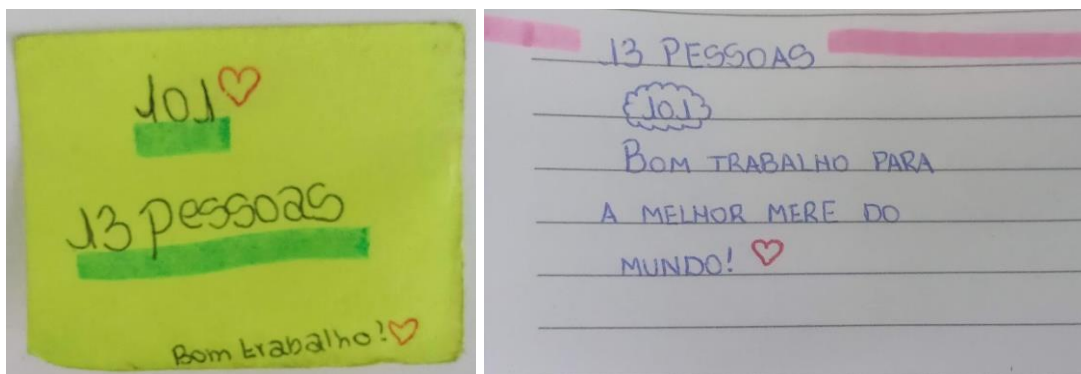 101
13 pessoas
Bom trabalho!
13 PESSOAS
101
BOM TRABALHO PARA
A MELHOR MERE DO
MUNDO!